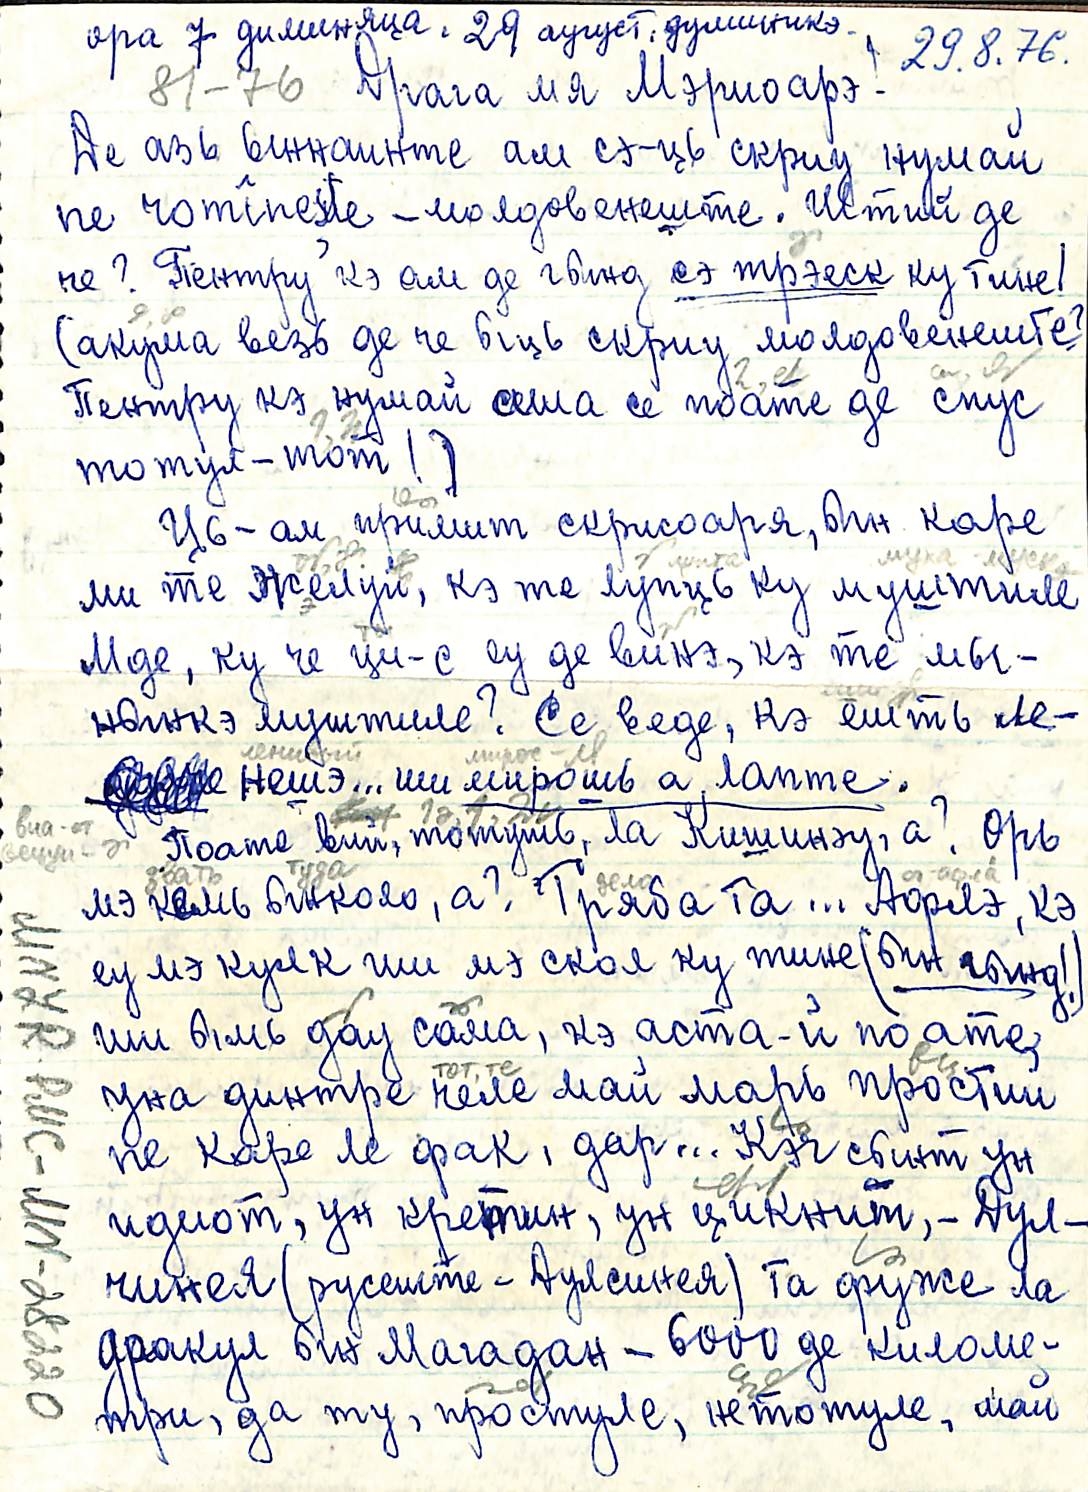 ора 7 диминяца. 29 аугуст. думиникэ.
29.8.76.
81-76 Драга мя Мэриоарэ!
Де азь ынаинте ам сэ-ць скриу нумай
пе romîneşte - молдовенеште. Штий де
че? Пентру кэ ам де гынд сэ трэеск ку тине!
(акума везь де че ыць скриу молдовенеште?
Пентру кэ нумай аша се поате де спус
тотул-тот!)
Ць-ам примит скрисоаря, ын каре
ми те жэлуй, кэ те лупць ку муштиле
Мде, ку че ци-с еу де винэ, кэ те мы-
нынкэ муштиле? Се веде, кэ ешть ле-
нешэ... ши мирошь а лапте.
ленивый
Поате вий, тотушь, ла Кишинэу, а? Орь
звать туда
мэ кемь ынколо, а? Тряба та... Афлэ, кэ
дело
еу мэ кулк ши мэ скол ку тине (ын гынд!)
ши ымь дау сама, кэ аста-й поате,
тот, те
уна динтре челе май марь простий
пе каре ле фак, дар... Кэч сынт ун
идиот, ун кретин, ун цикнит, - Дул-
чинея (русеште - Дулсинея) та фуже ла
дракул ын Магадан - 6000 де киломе-
три, да ту, простуле, нетотуле, май